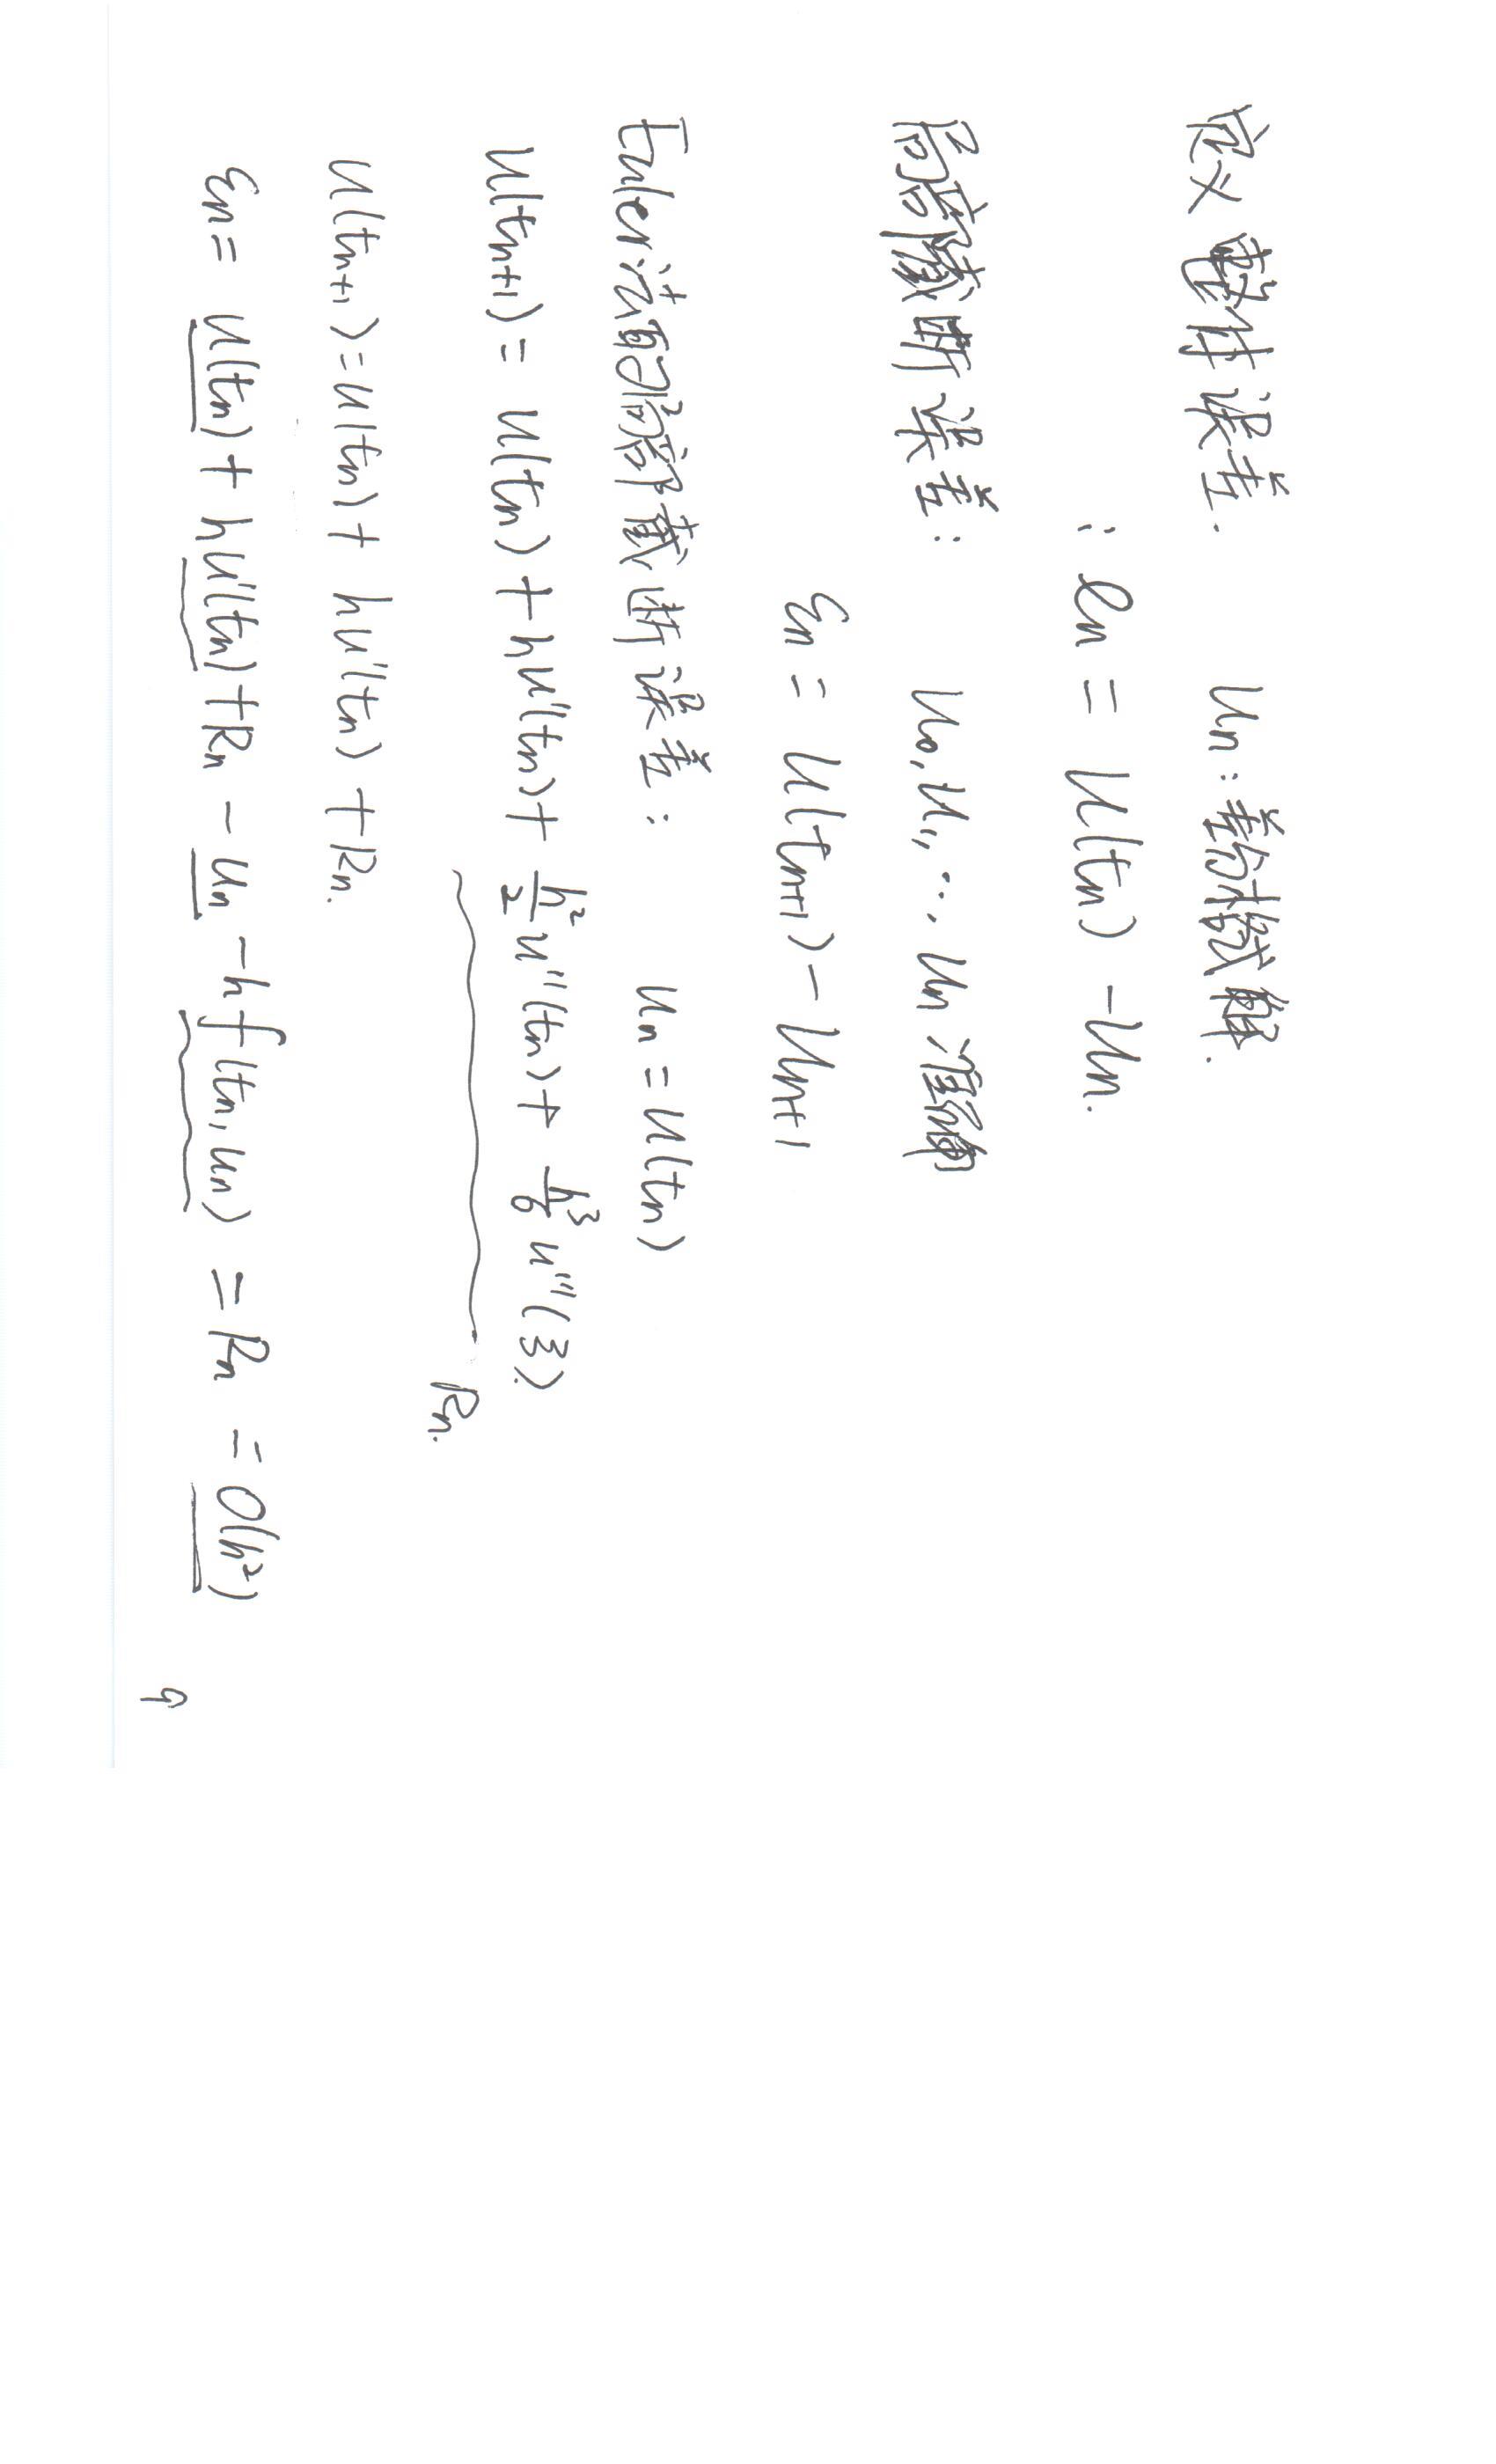 定义整体误差. un:差分格式解.
: en = u(tn) -un.
局部截断误差: u0,u1,…, un 准确
εn = u(tn+1) - un+1
Euler法的局部截断误差: un = u(tn)
u(tn+1) = u(tn) + hu'(tn) + h²/2 u''(tn) + h³/6 u'''(ξ).
Rn.
u(tn+1) = u(tn) + hu'(tn) + Rn.
εn = u(tn) + hu'(tn) + Rn - un - hf(tn, un) = Rn = O(h²)
9